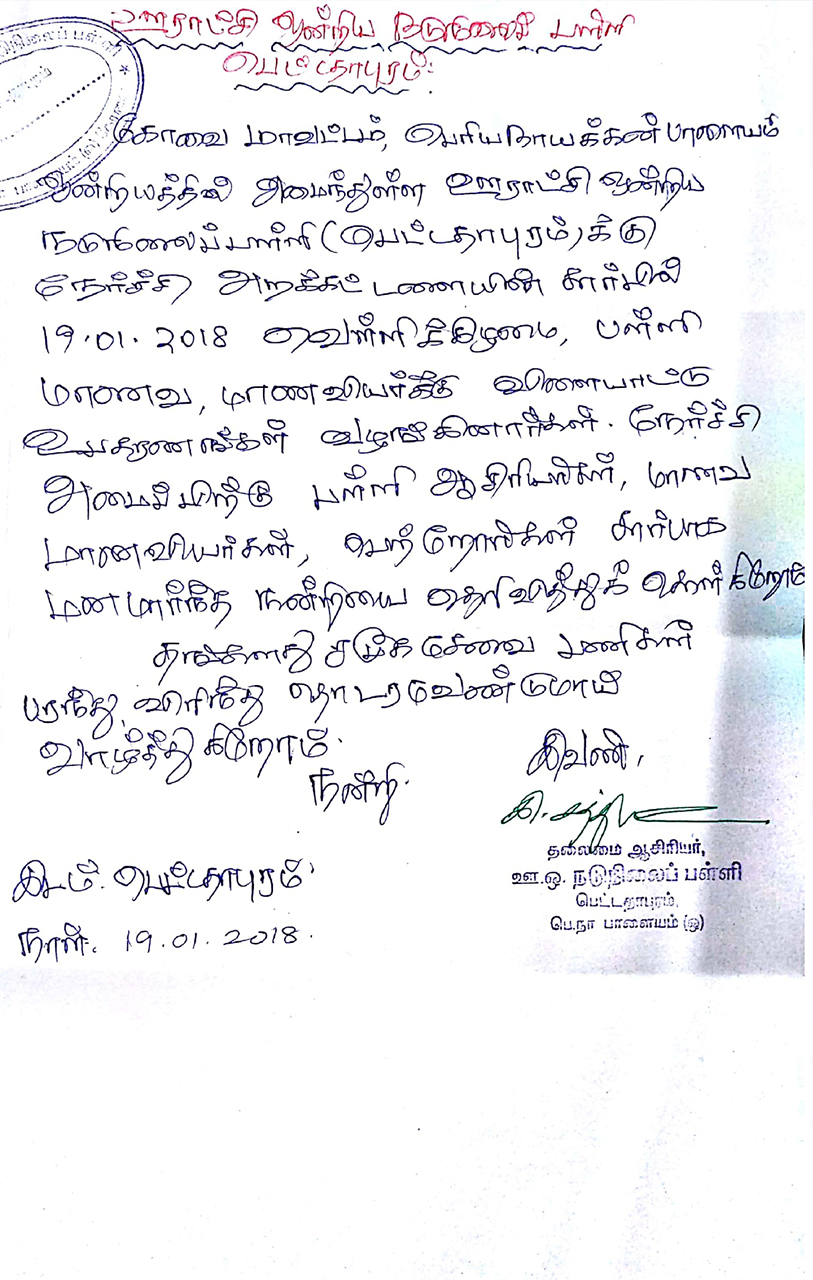 ஊராட்சி ஒன்றிய நடுநிலைப் பள்ளி
பெட்டதாபுரம்.
கோவை மாவட்டம், பெரியநாயக்கன்பாளையம்
ஒன்றியத்தில் அமைந்துள்ள ஊராட்சி ஒன்றிய
நடுநிலைப்பள்ளி (பெட்டதாபுரம்) க்கு
நேர்ச்சி அறக்கட்டளையின் சார்பில்
19.01.2018 வெள்ளிக்கிழமை, பள்ளி
மாணவ, மாணவியர்க்கு விளையாட்டு
உபகரணங்கள் வழங்கினார்கள். நேர்ச்சி
அமைப்பிற்கு பள்ளி ஆசிரியர்கள், மாணவ
மாணவியர்கள், பெற்றோர்கள் சார்பாக
மனமார்ந்த நன்றியை தெரிவித்துக் கொள்கிறோம்
தங்களது சமூக சேவை பணிகள்
பரந்து, விரிந்து தொடரவேண்டுமாய்
வாழ்த்துகிறோம்.
நன்றி.
இவண்,
தலைமை ஆசிரியர்,
ஊ.ஒ. நடுநிலைப் பள்ளி
பெட்டதாபுரம்,
பெ.நா பாளையம் (ஒ)
இடம். பெட்டதாபுரம்
நாள். 19.01.2018.